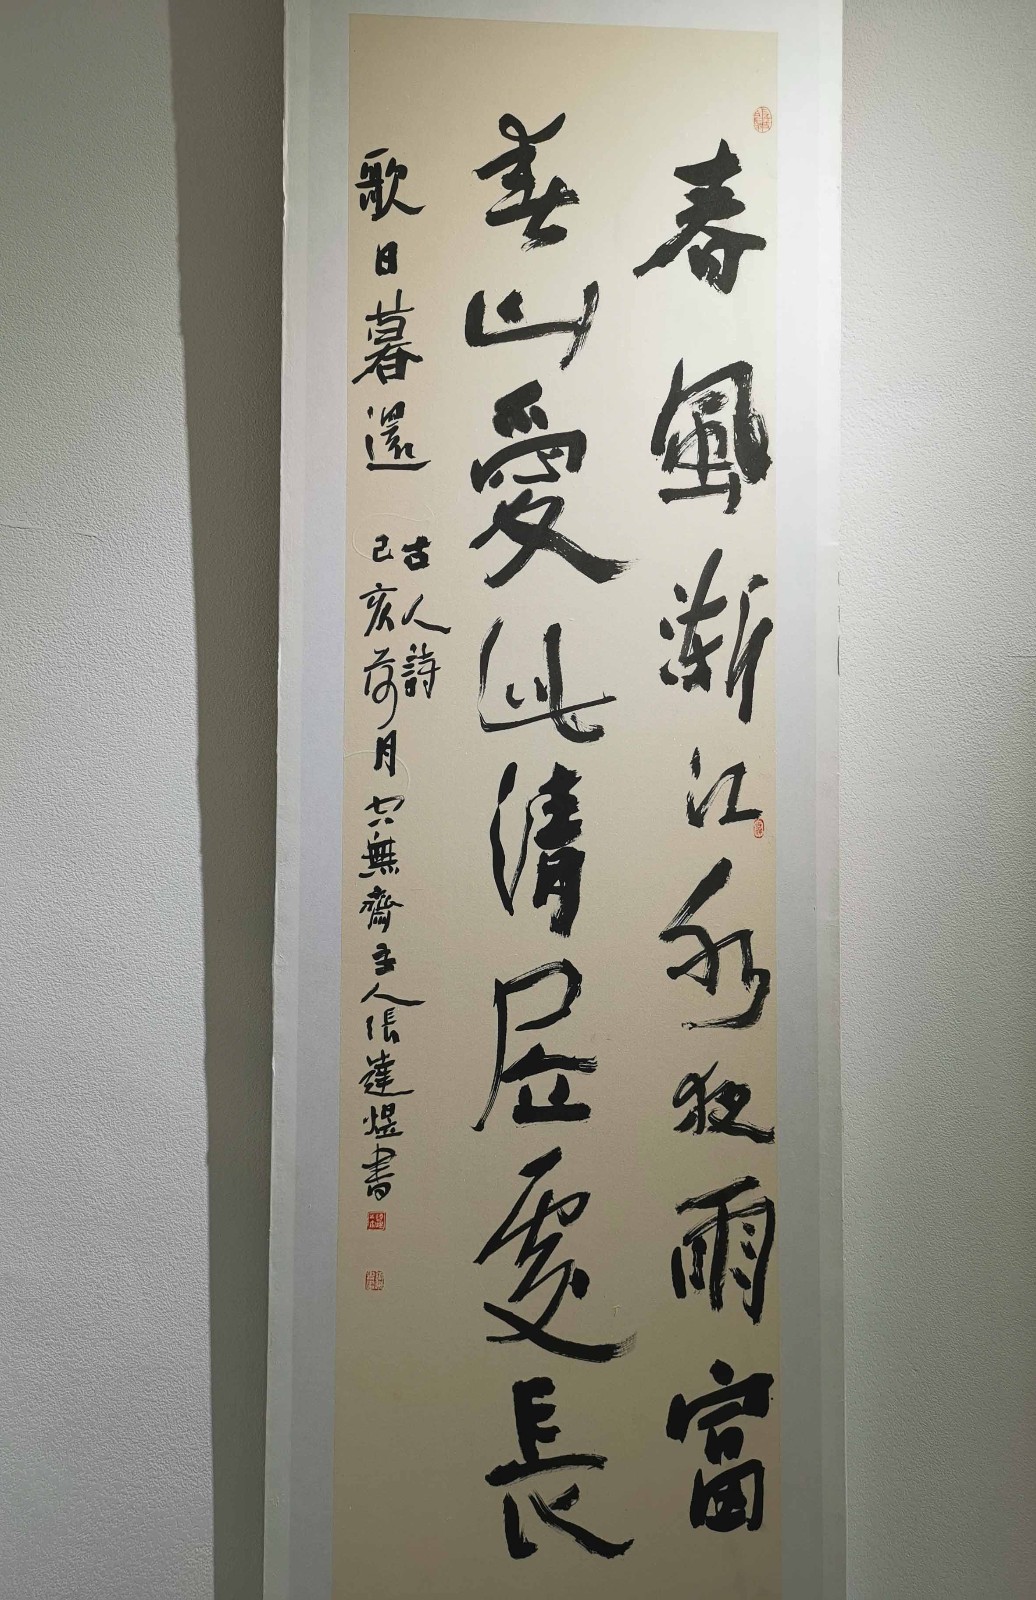 春風漸江水夜雨富
春山愛此清虛處長
歌日暮還
古人詩
己亥荷月空無齋主人張達煜書